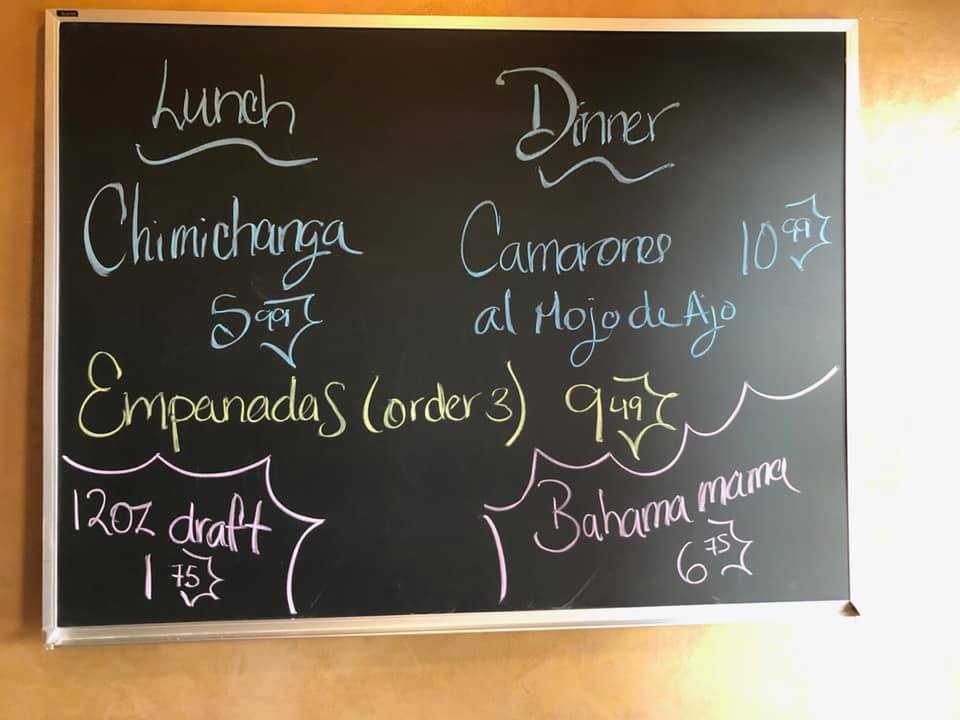 Lunch
Chimichanga
5 99
Dinner
Camarones 10 99
al Mojo de Ajo
Empanadas (order 3) 9 49
12oz draft
1 75
Bahama mama
6 75